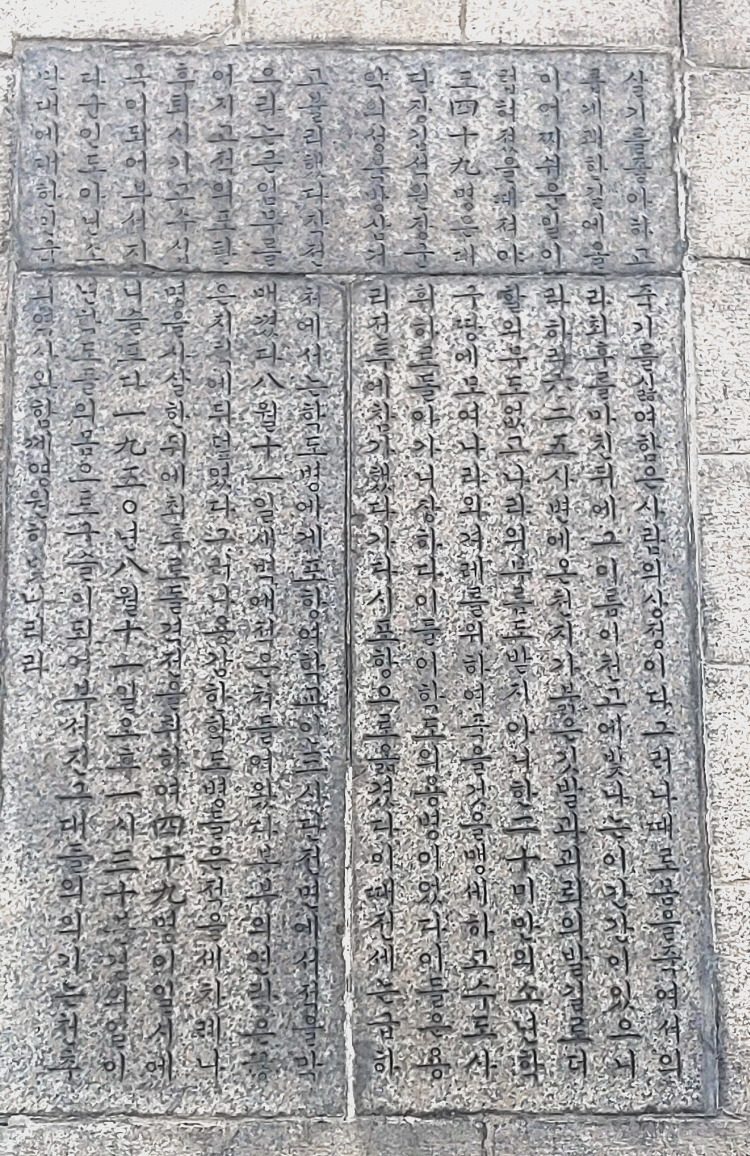 살기를좋아하고죽기를싫여함은사람의상정이다그러나때로몸을죽여서의
롭게쾌한길에올라최후를마친뒤에그이름이천고에빛나는이간간이있으니
이어찌쉬운일이라하랴六二五사변에온천지가붉은깃발과괴뢰의발길로더
럽혀졌을때져야할의무도없고나라의부름도받지아니한二十미만의소년학
도四十九명은대구땅에모여나라와겨레를위하여죽을것을맹세하고수도사
단장김석원장군휘하로돌아가니장하다이들이학도의용병이었다이들은용
리전투에참가했다가다시포항으로옮겼다이때전세는급하
고불리했다작전처에서는학도병에게포항여학교앞도시단전면에서적을막
으라는큰임무를매꼈다八월十一일새벽에적은쳐들여왔다본부의연락은끊
어지고적의포탄은지척에뒤덮였다그러나용감한학도병들은적을세차례나
후퇴시키고수십명을사살한뒤에최후로돌격전을감하여四十九명이일시에
옥이되어부서지니슬프다一九五0년八월十一일오후一시三十분경의일이
다군인도아닌소년학도들의몸으로구슬이되어부서진그대들의의기는천추
만대에대한민국의역사와함께영원하도